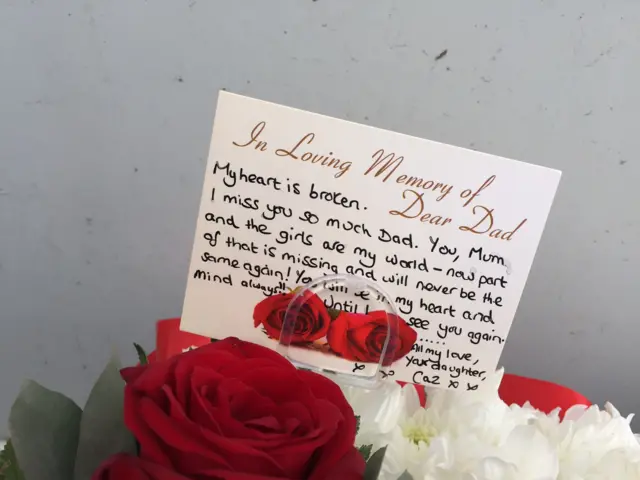 In Loving Memory of
Dear Dad
My heart is broken.
I miss you so much Dad. You, Mum,
and the girls are my world - now part
of that is missing and will never be the
same again! You will be in my heart and
mind always!! Until I see you again.
......
All my love,
Your daughter,
x x Caz x x